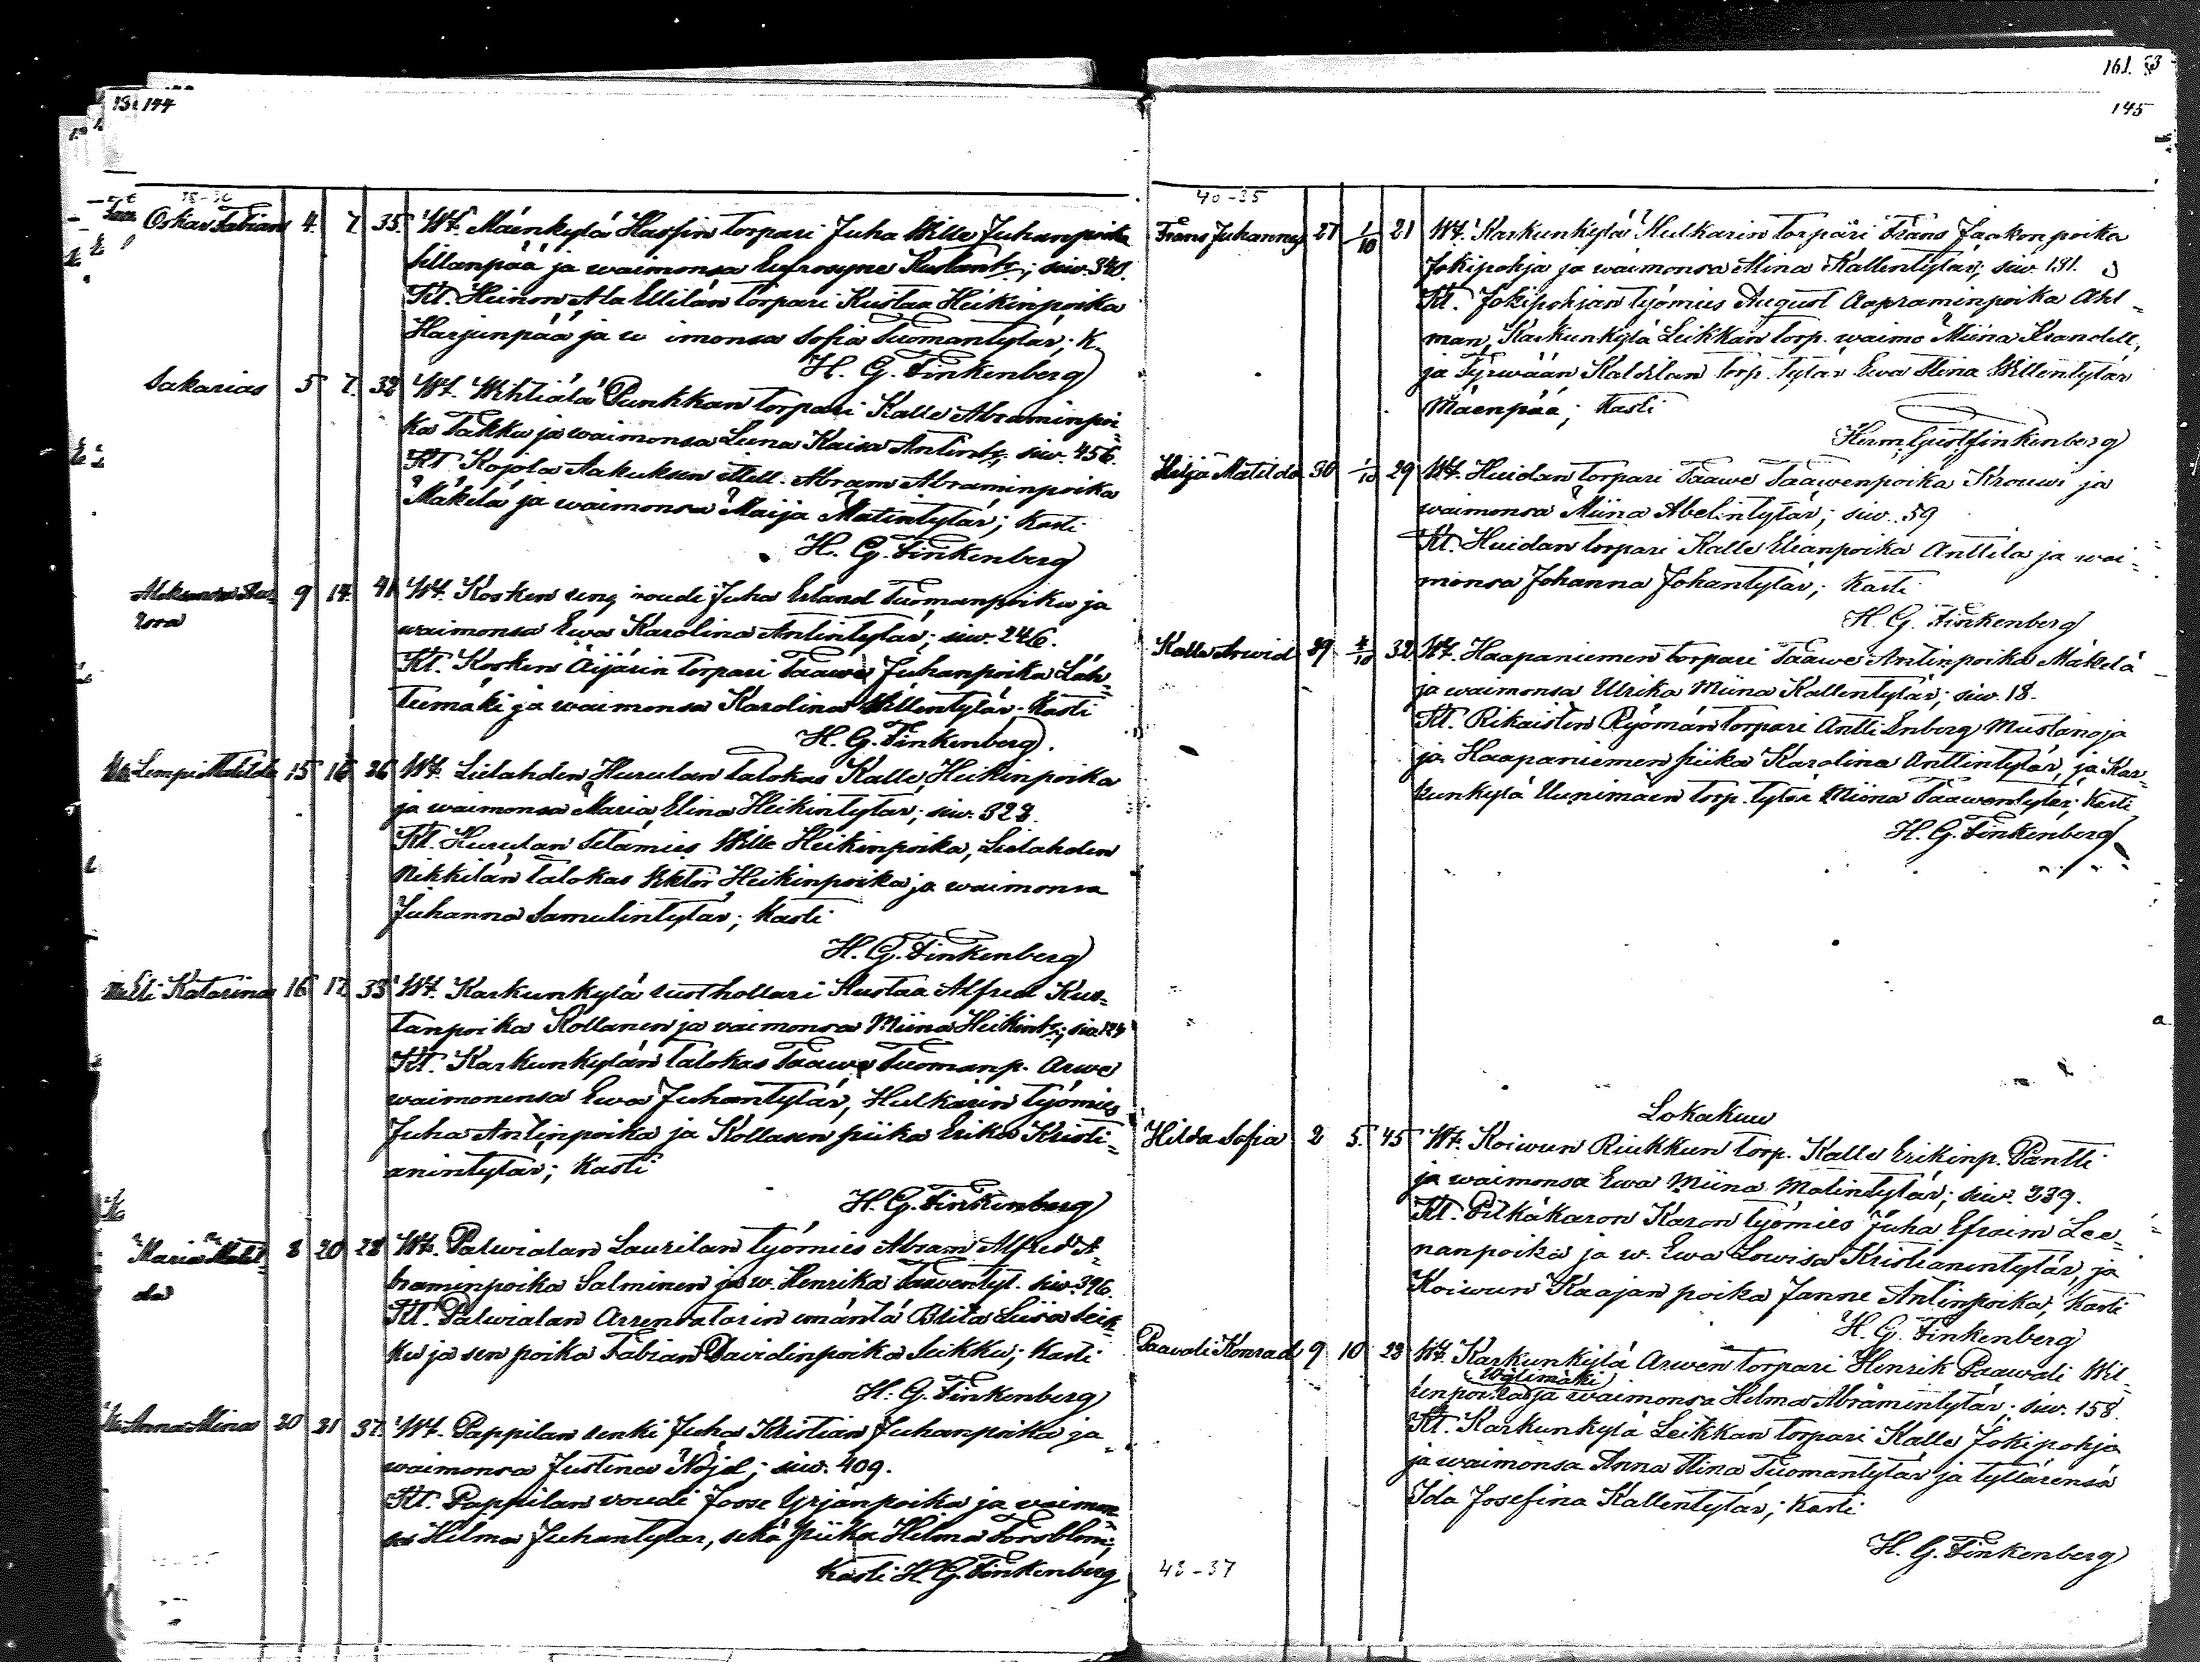 131 144
35-30
Oskar Fabian 4. 7. 35. Wt. Mäinkylä Hassin torpari Juha Wille Juhanpoika
Sillanpää ja waimonsa Eufrosyne Kustaants.; siw. 340.
Kt. Heinon Ala Ellilän torpari Kustaa Heikinpoika
Harjunpää ja w imonsa Sofia Tuomantytär; K.
H. G. Finkenberg
Sakarias 5 7. 32 Wt. Wihtiälä Punkkan torpari Kalle Abraminpoi-
ka Takku ja waimonsa Leena Kaisa Antints.; siw. 456.
Kt. Kojola Aakuksen itsell. Abram Abraminpoika
Mäkelä ja waimonsa Maija Matintytär; Kasti
H. G. Finkenberg
9 14. 41 Wt. Kosken ren woudi Juha Erland Tuomanpoika ja
rora
waimonsa Ewa Karolina Antintytär; siw. 246.
Kt. Kosken Äijärin torpari Taawe Juhanpoika Läh-
teemäki ja waimonsa Karolina Willentytär. Kasti
H. G. Finkenberg.
Lempi Matilda 15 16 26 Wt. Lielahden Hurulan talokas Kalle Heikinpoika
ja waimonsa Maria Elina Heikintytär; siw. 323.
Kt. Hurulan Setämies Wille Heikinpoika, Lielahden
Nikkilän talokas Wiktor Heikinpoika ja waimonsa
Juhanna Samulintytär; Kasti
H. G. Finkenberg
Eli Katarina 16 17. 35 Wt. Karkunkylä rusthollari Kustaa Alfred Kus-
tanpoika Kollanen ja vaimonsa Miina Heikints.; siw. 124
Kt. Karkunkylän talokas Taawe Tuomanp. Arwe
waimonensa Ewa Juhantytär, Hulkarin työmies
Juha Antinpoika ja Kollasen piika Erika Kristi-
anintytär; Kasti
H. G. Finkenberg
Maria Matil- 8 20 28 Wt. Palwialan Laurilan työmies Abram Alfred A-
da
braminpoika Salminen ja w. Henrika Taaventyt. siw. 396.
Kt. Palwialan Arrentatorin emäntä Brita Liisa Seik-
ku ja sen poika Fabian Davidinpoika Seikku; Kasti
H. G. Finkenberg
Anna Miina 20 21 37. Wt. Pappilan renki Juha Kristian Juhanpoika ja
waimonsa Justina Nöjd; siw. 409.
Kt. Pappilan voudi Josse Yrjänpoika ja vaimon-
sa Hilma Juhantytär, sekä piika Hilma Forsblom;
Kasti H. G. Finkenberg
161.
145
40-35
Frans Juhannes 27 1/10 21 Wt. Karkunkylä Hulkarin torpari Frans Jaakonpoika
Jokipohja ja waimonsa Miina Kallentytär; siw. 131.
Kt. Jokipohjan työmies August Aapraminpoika Ahl-
man, Karkunkylä Leikkan torp. waimo Miina Krandell,
ja Tyrwään Kaldilan torp. tytär Ewa Miina Willentytär
Mäenpää; Kasti
Herm. Gust. Finkenberg
Hilja Matilda 30 1/10 29 Wt. Huidan torpari Taawe Taawenpoika Krouwi ja
waimonsa Miina Abelintytär; siw. 59
Kt. Huidan torpari Kalle Elianpoika Anttila ja wai-
monsa Johanna Johantytär; Kasti
H. G. Finkenberg
Kalle Arwid 29 /10 32 Wt. Haapaniemen torpari Taawe Antinpoika Mäkelä
ja waimonsa Ulrika Miina Kallentytär; siw. 18.
Kt. Rikaisten Ryömän torpari Antti Enberg Mustanoja
ja Haapaniemen piika Karolina Anttintytär, ja Kar-
kunkylä Uunimäen torp. tytär Miina Taawentytär; Kasti
H. G. Finkenberg
Lokakuu
Hilda Sofia 2 5. 45 Wt. Koiwun Riukkun torp. Kalle Erikinp. Pantti
ja waimonsa Ewa Miina Matintytär; siw. 239.
Kt. Pitkäkaron Karon työmies Juha Efraim Lee-
nanpoika ja w. Ewa Lowisa Kristianintytär, ja
Koiwun Kaajan poika Janne Antinpoika; Kasti
H. G. Finkenberg
Paavali Konrad 9 10 23 Wt. Karkunkylä Arwen torpari Henrik Paawali Wil-
(Wälimäki)
lenpoika ja waimonsa Hilma Abramintytär; siw. 158.
Kt. Karkunkylä Leikkan torpari Kalle Jokipohja
ja waimonsa Anna Miina Tuomantytär ja tyttärensä
Ida Josefina Kallentytär; Kasti
H. G. Finkenberg
43-37